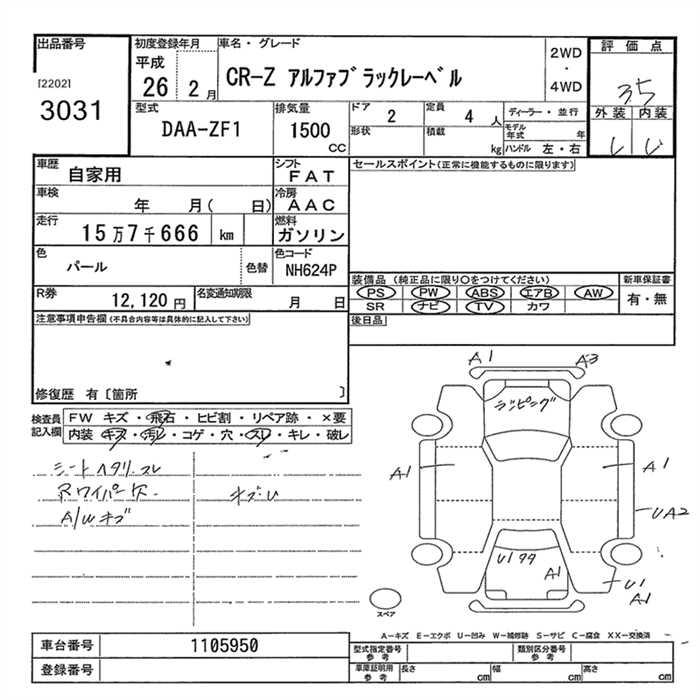 出品番号
[2202]
3031
初度登録年月
平成
26 2月
車名・グレード
CR-Z アルファブラックレーベル
2WD
・
4WD
評価点
3.5
外装 内装
型式
DAA-ZF1
排気量
1500
CC
ドア
2
定員
4 人
形状
積載
kg
ディーラー・並行
モデル年式 年
ハンドル 左・右
車歴
自家用
シフト
FAT
車検
年 月( 日)
冷房
AAC
走行
15万7千666 km
燃料
ガソリン
色
パール
色替
色コード
NH624P
R券
12,120円
名変通知期限
月 日
セールスポイント(正常に機能するものに限ります)
装備品 (純正品に限り○をつけてください)
PS PW ABS エアB AW
SR ナビ TV カワ
新車保証書
有・無
後日品
注意事項申告欄(不具合内容等は具体的に記入して下さい)
修復歴 有〔箇所 〕
検査員記入欄
FW キズ・飛石・ヒビ割・リペア跡・×要
内装 キズ・汚レ・コゲ・穴・スレ・キレ・破レ
シートヘタリ・スレ
Rワイパー欠
A/W キズ
キズU
A1
A3
ラッピング
A1
A1
UA2
U1
A1
U1
A1
スペア
A－キズ E－エクボ U－凹み W－補修跡 S－サビ C－腐食 XX－交換済
車台番号
1105950
登録番号
型式指定番号
参考
類別区分番号
参考
車庫証明用
参考
長さ cm
幅 cm
高さ cm